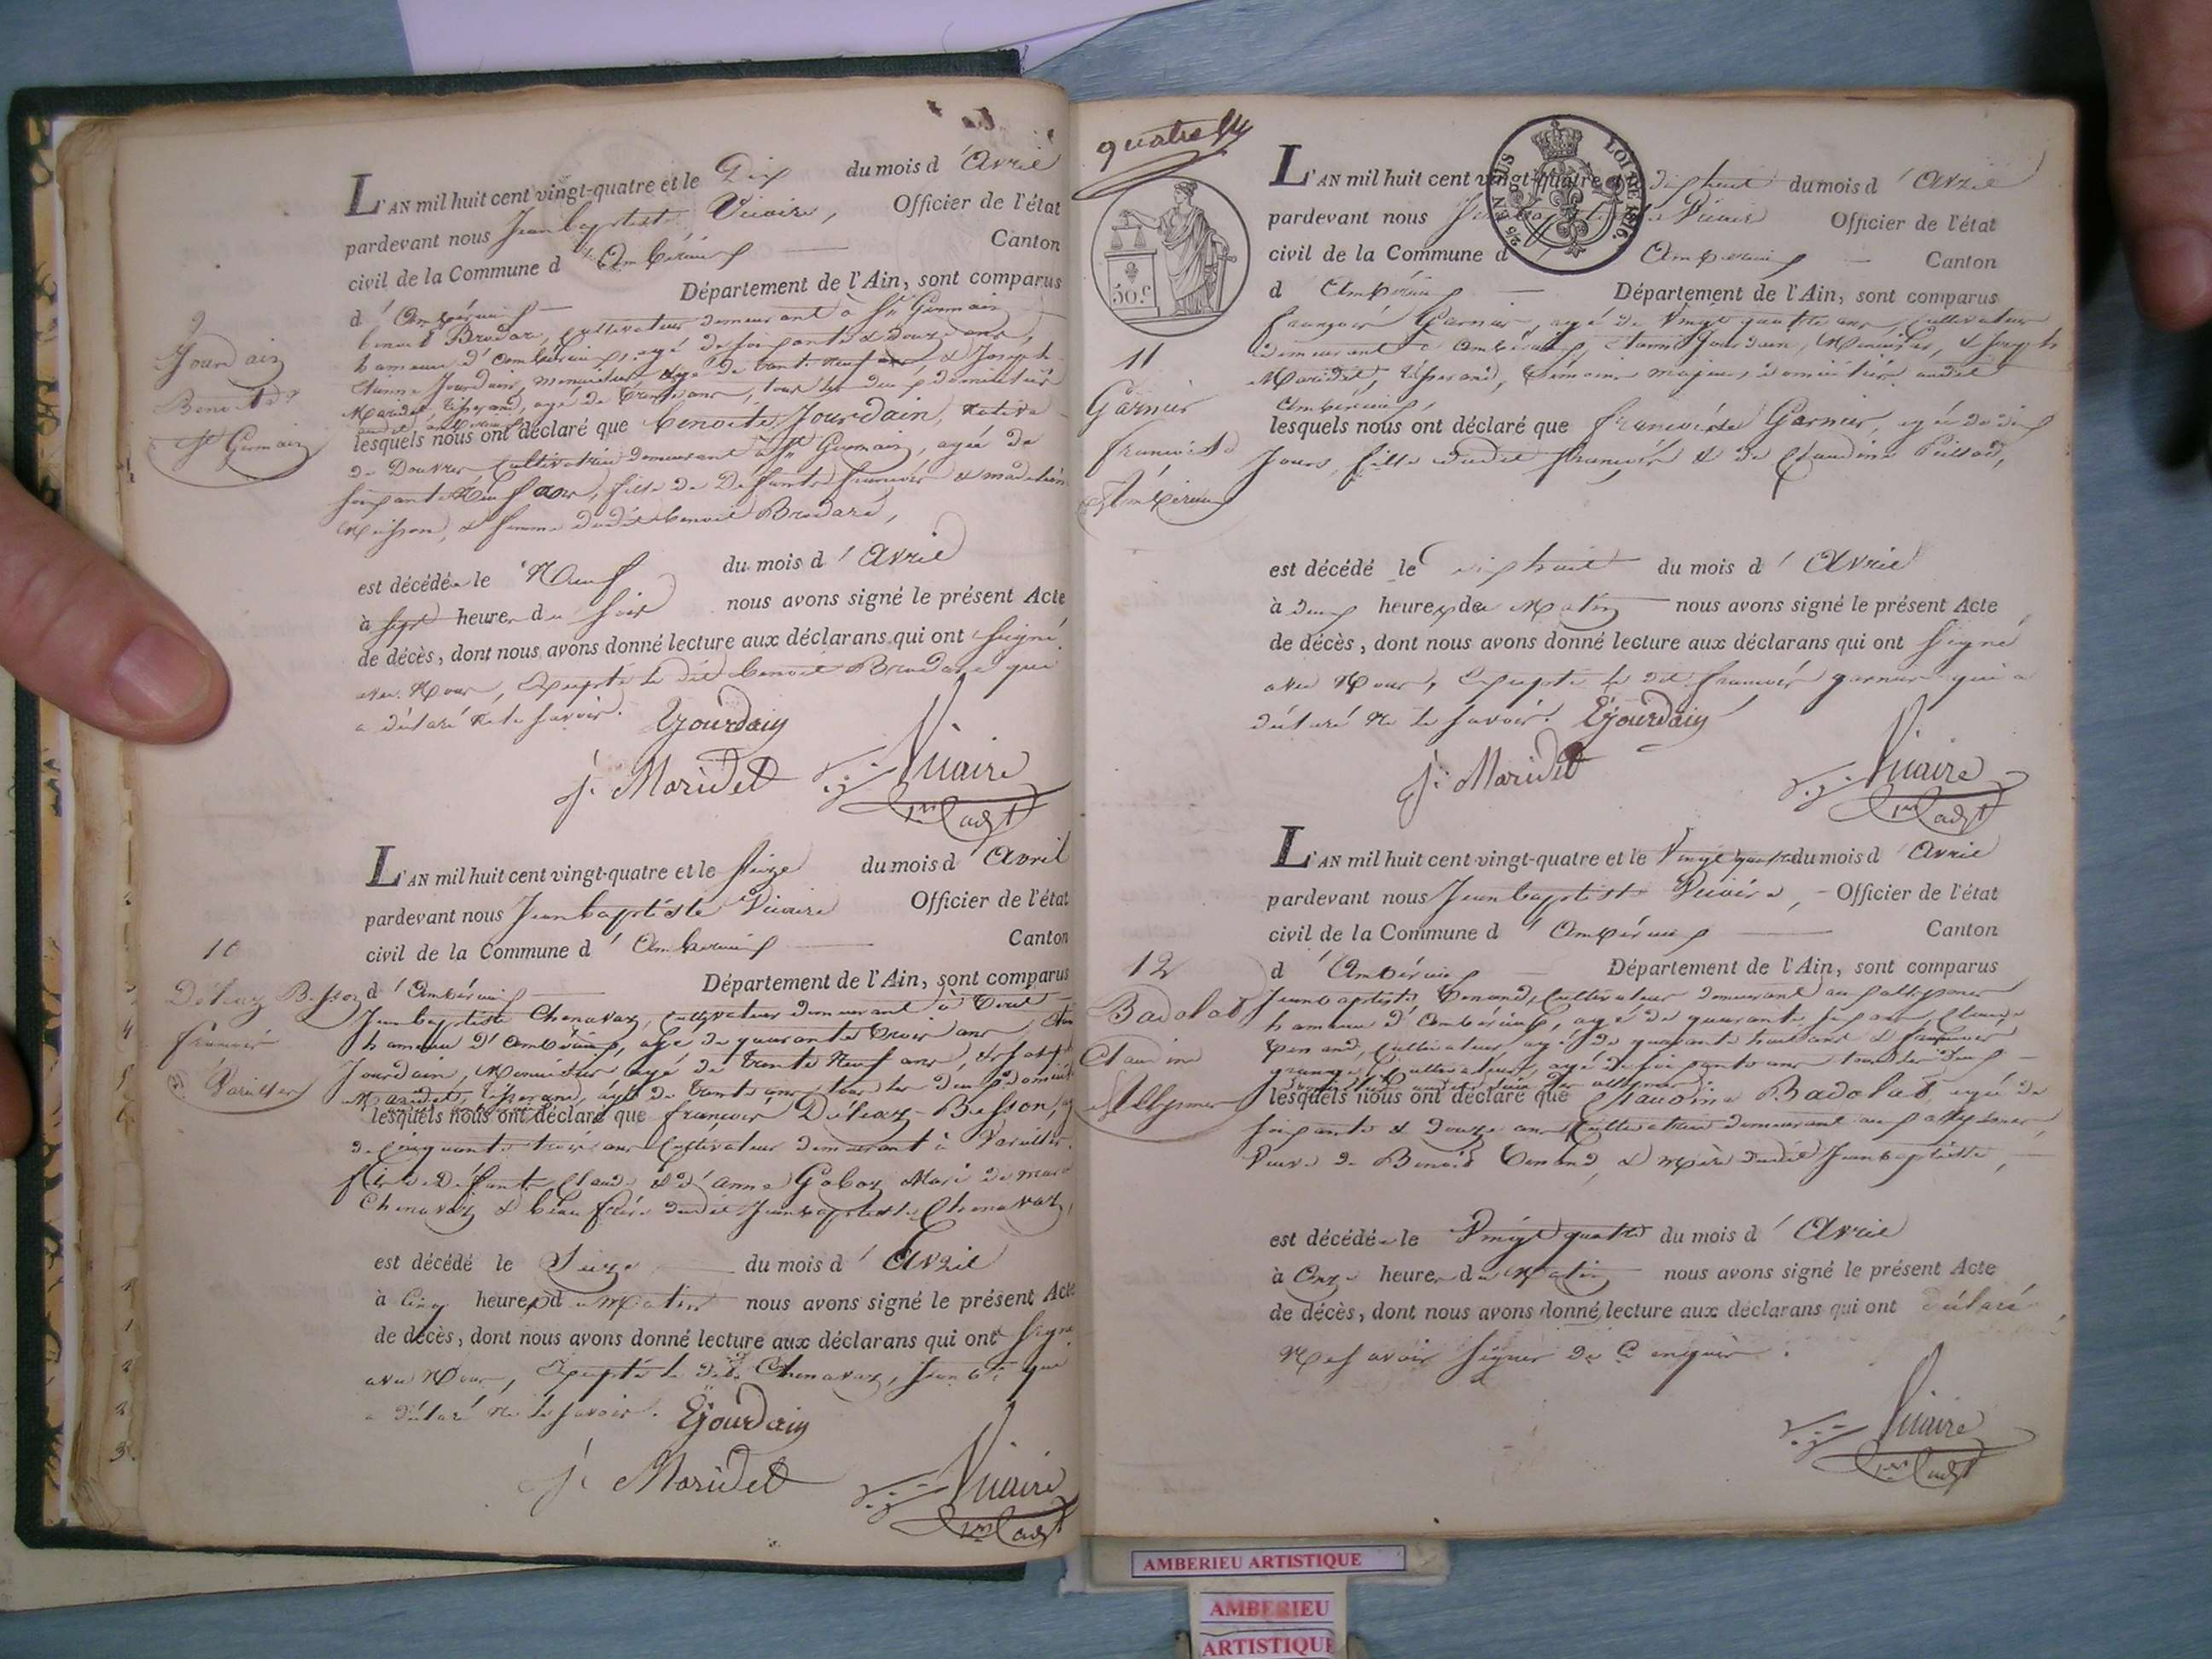 L'AN mil huit cent vingt-quatre et le Dix du mois d'Avril
pardevant nous Jean baptiste Vicaire, Officier de l'état
civil de la Commune d'Ambérieux Canton
d'Ambérieux Département de l'Ain, sont comparus
benoit Brodard, cultivateur demeurant à St Germain
hameau d'Ambérieux, agé de soixante & douze ans,
Etienne Jourdain, menuisier agé de trente neuf ans, & Joseph
Maridet, tisserand, agé de trente ans, tous les deux domiciliés
9
Jourdain
Benoite
St Germain
lesquels nous ont déclaré que benoite Jourdain, native
de Douvres cultivatrice demeurant à St Germain, agée de
soixante neuf ans, fille de défunts françois & madelaine
femme dudit benoit Brodard,
est décédée le Neuf du mois d'Avril
à sept heures du soir nous avons signé le présent Acte
de décès, dont nous avons donné lecture aux déclarans qui ont signé
avec Nous, Excepté le dit benoit Brodard qui
a déclaré ne le savoir. EJourdain
J. Maridet Vicaire
1er adjt
L'AN mil huit cent vingt-quatre et le seize du mois d'Avril
pardevant nous Jean baptiste Vicaire Officier de l'état
civil de la Commune d'Ambérieux Canton
10
françois
Vareilles
d'Ambérieux Département de l'Ain, sont comparus
Jean baptiste Chenavaz, cultivateur demeurant à
hameau d'Ambérieux, agé de quarante trois ans,
Jourdain, Menuisier agé de trente neuf ans, & Joseph
Maridet, tisserand, agé de trente ans tous les deux
lesquels nous ont déclaré que françois Besson,
de cinquante trois ans cultivateur demeurant à Vareilles
fils de défunts Claude & d'anne Mari de
Chenavaz & beau frère dudit Jean baptiste Chenavaz,
est décédé le Seize du mois d'Avril
à Cinq heures du Matin nous avons signé le présent Acte
de décès, dont nous avons donné lecture aux déclarans qui ont signé
avec Nous, Excepté le dit Chenavaz, Jean bte qui
a déclaré ne le savoir. EJourdain
J. Maridet Vicaire
1er adjt
quatre
EN SUS LOI DE 1816.
50.c
L'AN mil huit cent vingt-quatre et le dix huit du mois d'Avril
pardevant nous Vicaire Officier de l'état
civil de la Commune d'Ambérieux Canton
d'Ambérieux Département de l'Ain, sont comparus
françois Garnier, agé de Vingt quatre ans, cultivateur
demeurant à Ambérieux, Etienne Jourdain, Menuisier, & Joseph
Maridet, tisserand, témoins majeurs domiciliés audit
Ambérieux,
11
Garnier
françoise
Ambérieux
lesquels nous ont déclaré que françoise Garnier, agée de dix
Jours, fille dudit françois & de Claudine
est décédé le dix huit du mois d'Avril
à deux heures du Matin nous avons signé le présent Acte
de décès, dont nous avons donné lecture aux déclarans qui ont signé
avec Nous, Excepté le dit françois garnier qui a
déclaré ne le savoir. EJourdain
J. Maridet Vicaire
1er adjt
L'AN mil huit cent vingt-quatre et le Vingt quatre du mois d'Avril
pardevant nous Jean baptiste Vicaire, Officier de l'état
civil de la Commune d'Ambérieux Canton
12
Badolat
Claudine
d'Ambérieux Département de l'Ain, sont comparus
Jean baptiste cultivateur demeurant
hameau d'Ambérieux, agé de quarante ans, Claude
cultivateur agé de quarante huit ans &
cultivateur, agé de soixante ans tous les deux
lesquels nous ont déclaré que Claudine Badolat, agée de
soixante & douze ans cultivatrice demeurant
Veuve de Benoit & mère dudit Jean baptiste,
est décédée le Vingt quatre du mois d'Avril
à Onze heures du Matin nous avons signé le présent Acte
de décès, dont nous avons donné lecture aux déclarans qui ont déclaré
ne savoir signer de ce enquis.
Vicaire
1er adjt
AMBERIEU ARTISTIQUE
AMBERIEU
ARTISTIQUE